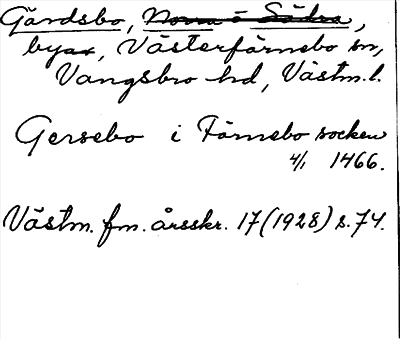 Gärdsbo, Norra o Södra,
byar, Västerfärnebo sn,
Vangsbro hd, Västm. l.
Gersebo i Färnebo socken
4/1 1466.
Västm. fm. årsskr. 17 (1928) s. 74.